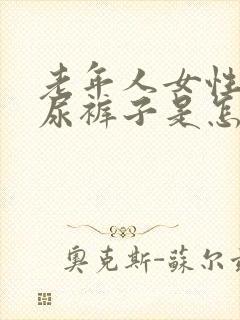 老年人女性
尿裤子是怎
奥克斯-蘇尔